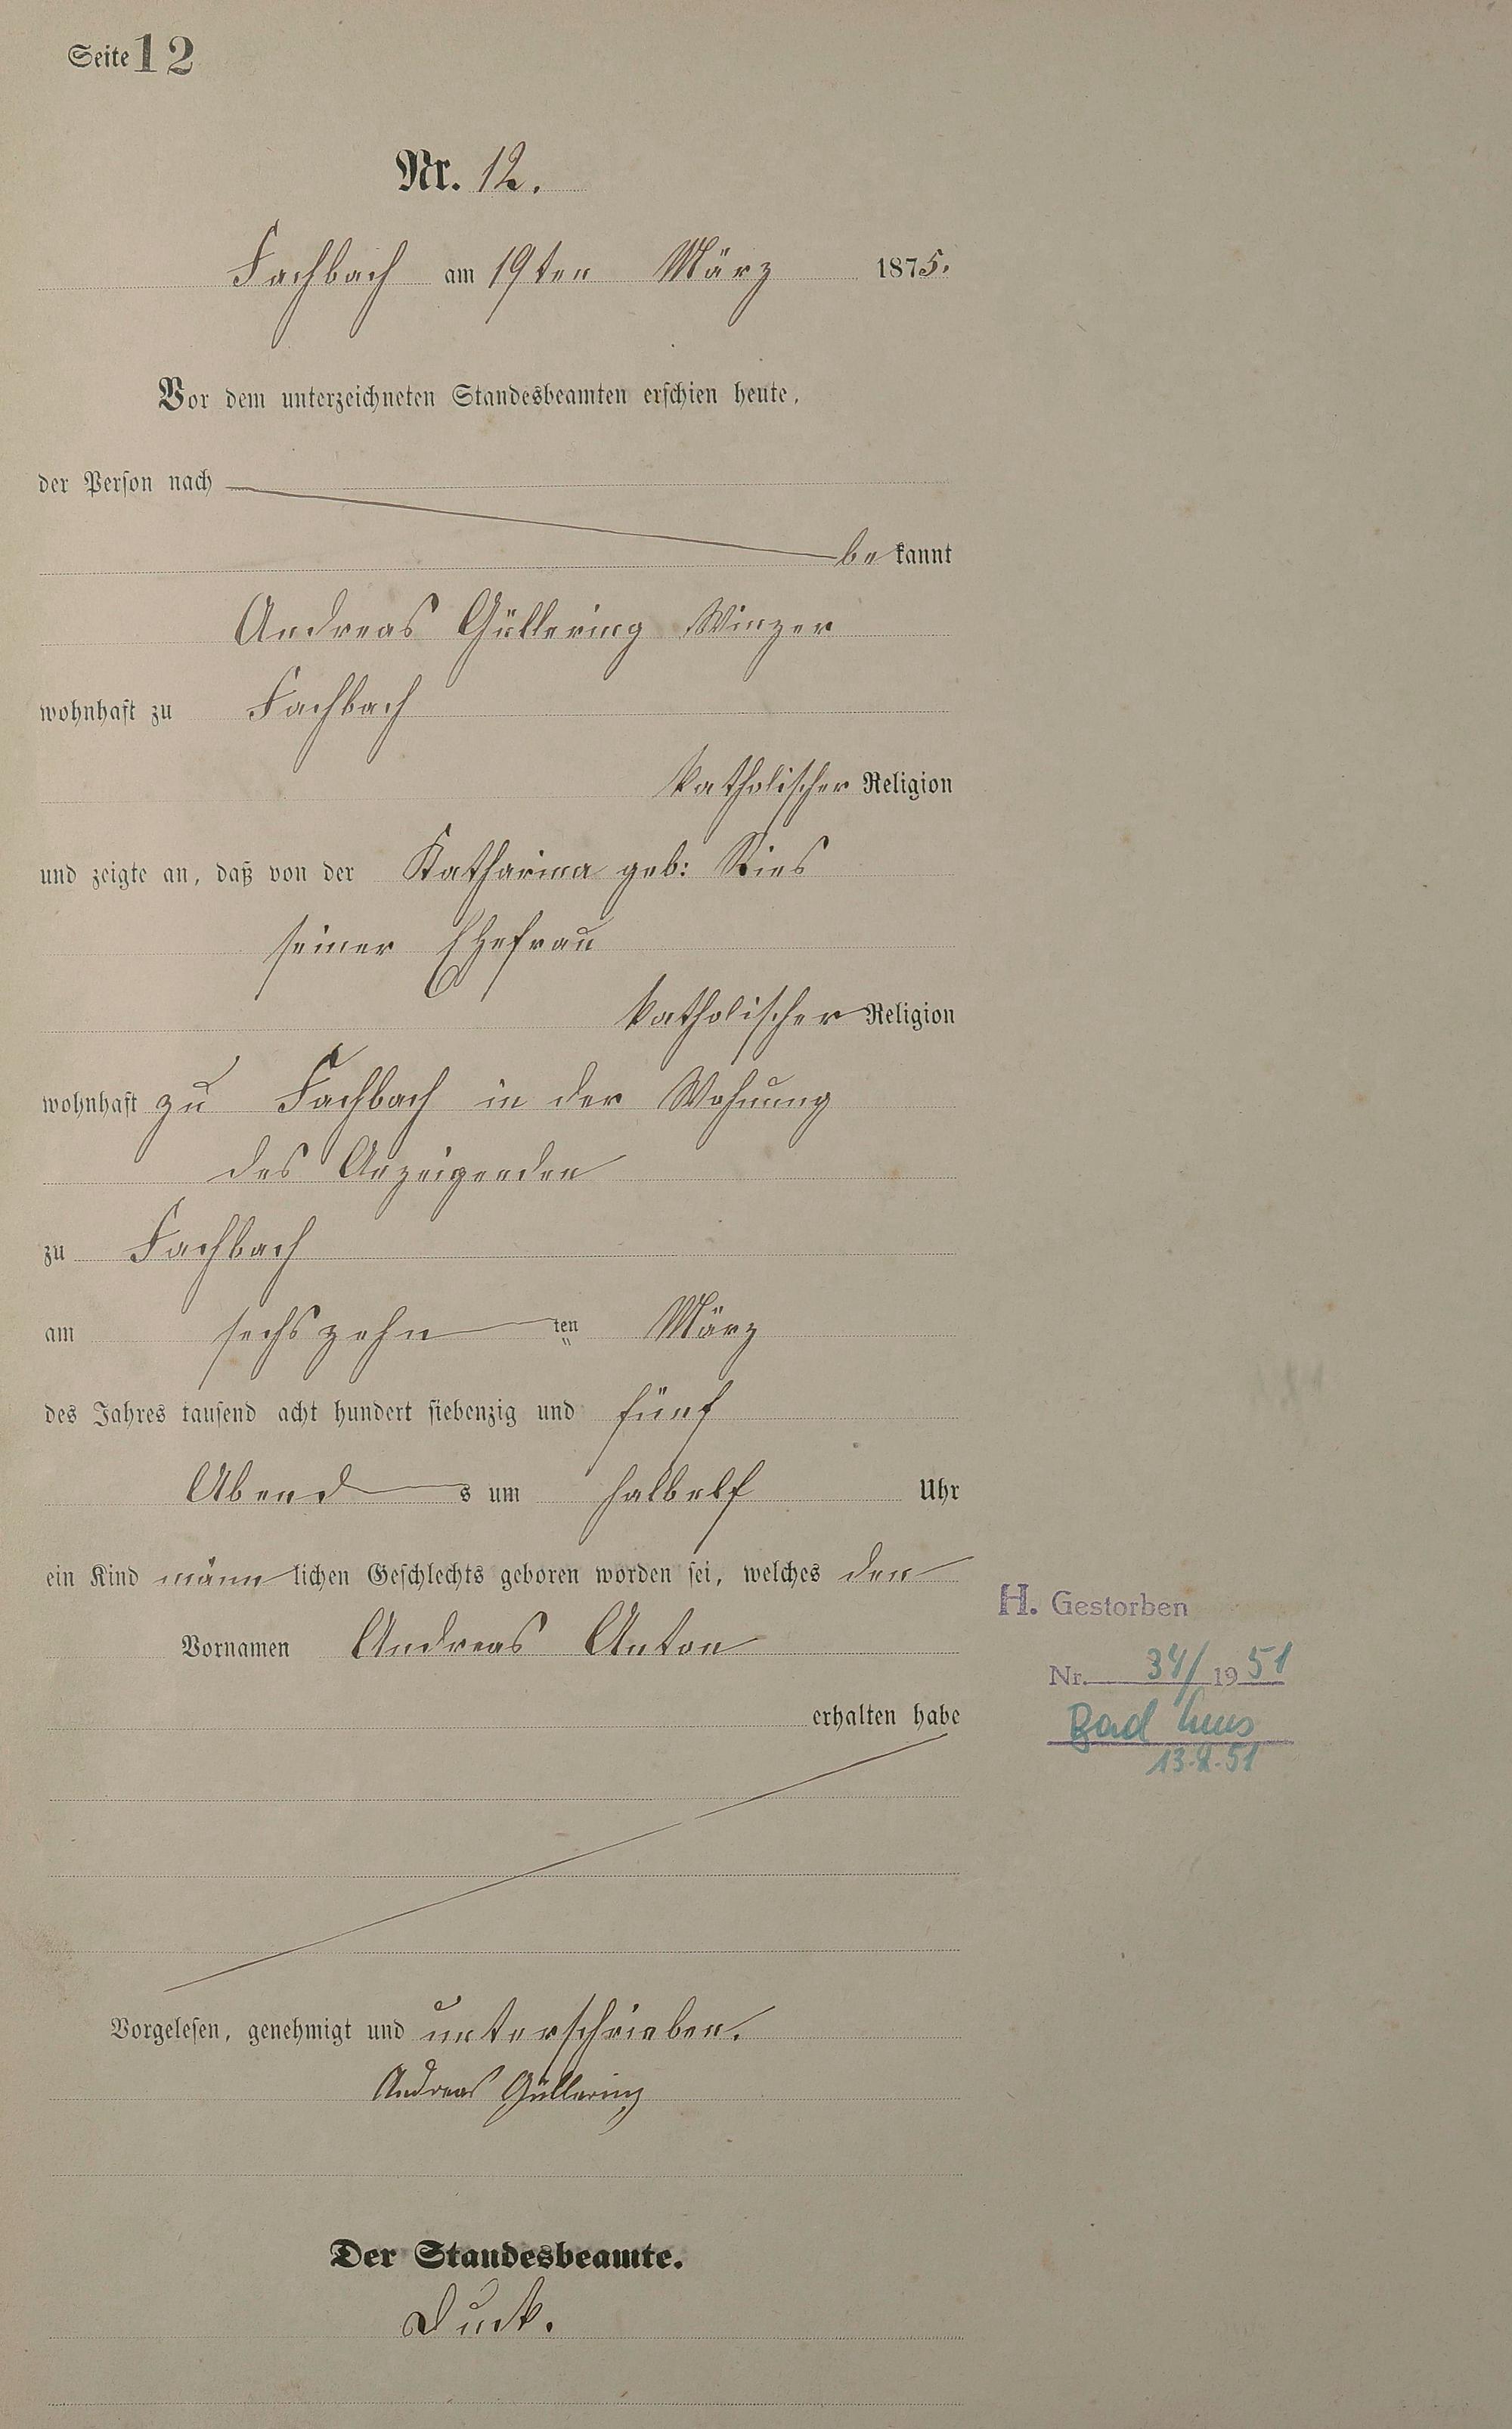 Seite 12
Nr. 12.
Fachbach am 19ten März 1875.
Vor dem unterzeichneten Standesbeamten erschien heute,
der Person nach
bekannt
Andreas Güllering Winzer
wohnhaft zu Fachbach
katholischer Religion
und zeigte an, daß von der Katharina geb: Ries
seiner Ehefrau
katholischer Religion
wohnhaft zu Fachbach in der Wohnung
des Anzeigenden
zu Fachbach
am sechszehn ten März
des Jahres tausend acht hundert siebenzig und fünf
Abend s um halbelf Uhr
ein Kind männlichen Geschlechts geboren worden sei, welches den
Vornamen Andreas Anton
erhalten habe
H. Gestorben
Nr. 34/1951
Bad Ems
13.2.51
Vorgelesen, genehmigt und unterschrieben.
Andreas Güllering
Der Standesbeamte.